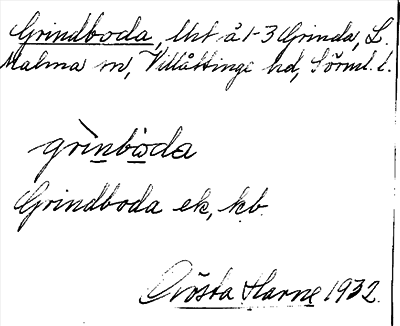 Grindboda, lht å 1-3 Grinda, L.
Malma sn, Villåttinge hd, Sörml. l.
grìnbòda
Grindboda ek, kb.
Harne 1932.